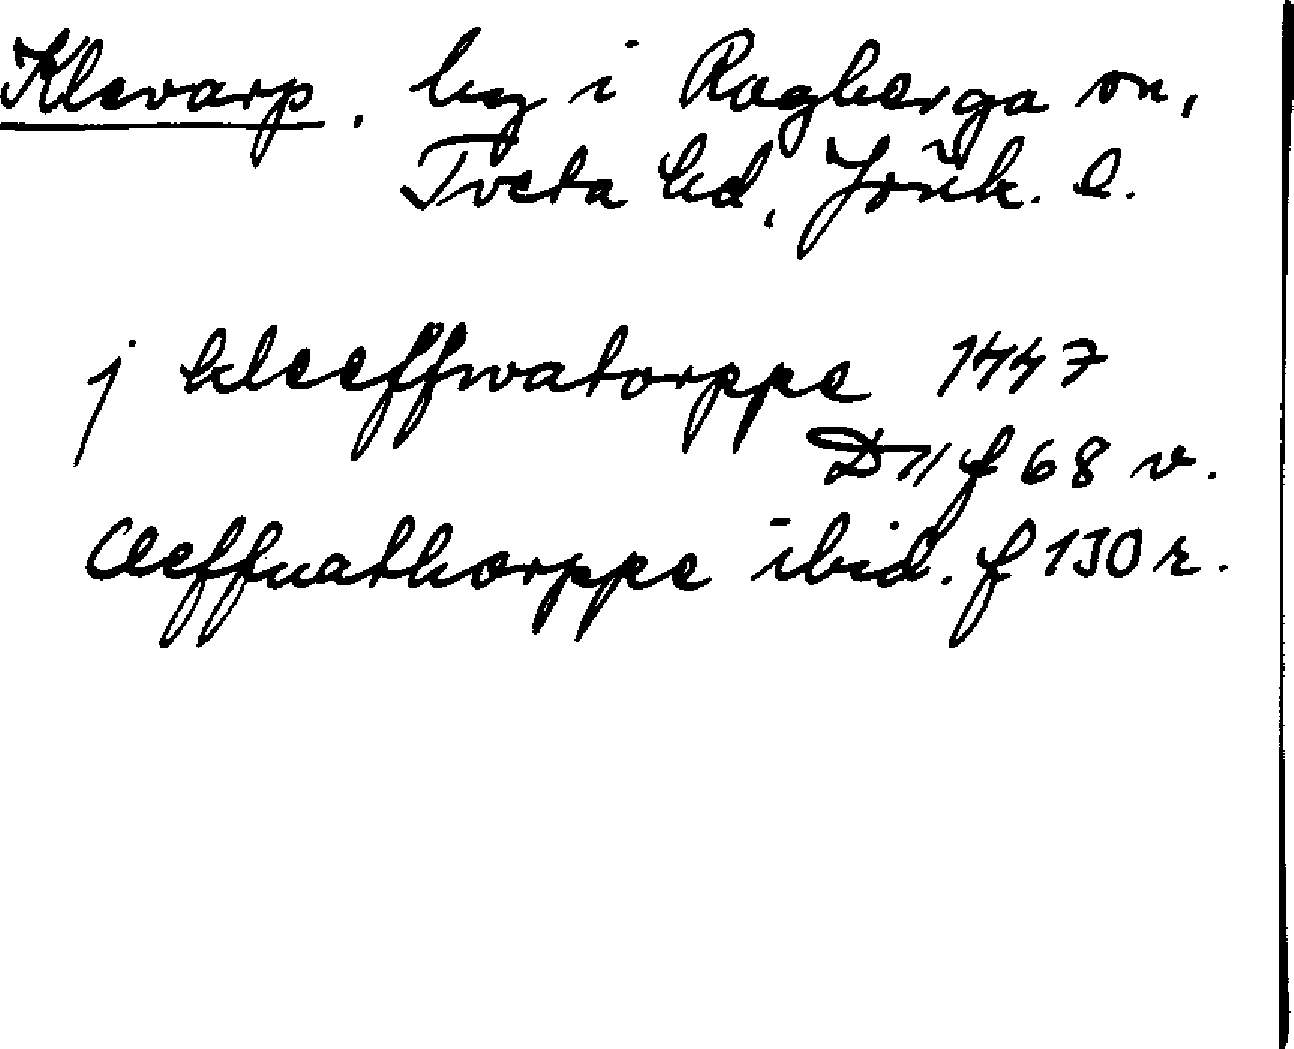 Klevarp, by i Rogberga sn,
Tveta hd, Jönk. l.
j kleeffwatorppe 1447
D11 f 68 v.
Cleffuathorppe ibid. f 130 r.